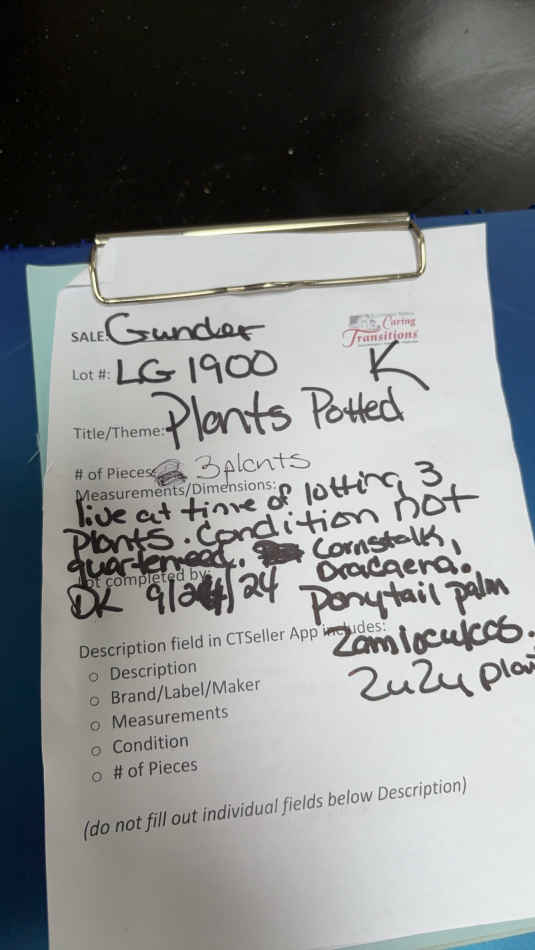 SALE: Gunder
Caring
Transitions
Lot #: LG 1900 K
Title/Theme: Plants Potted
# of Pieces: 3 plants
Measurements/Dimensions:
live at time of lotting 3
Plants. Condition not
quarenteed. Cornstalk,
Lot completed by: Dracaena.
DK 9/24/24 Ponytail palm
Description field in CTSeller App includes:
Zamioculcas.
ZuZu plant
o Description
o Brand/Label/Maker
o Measurements
o Condition
o # of Pieces
(do not fill out individual fields below Description)